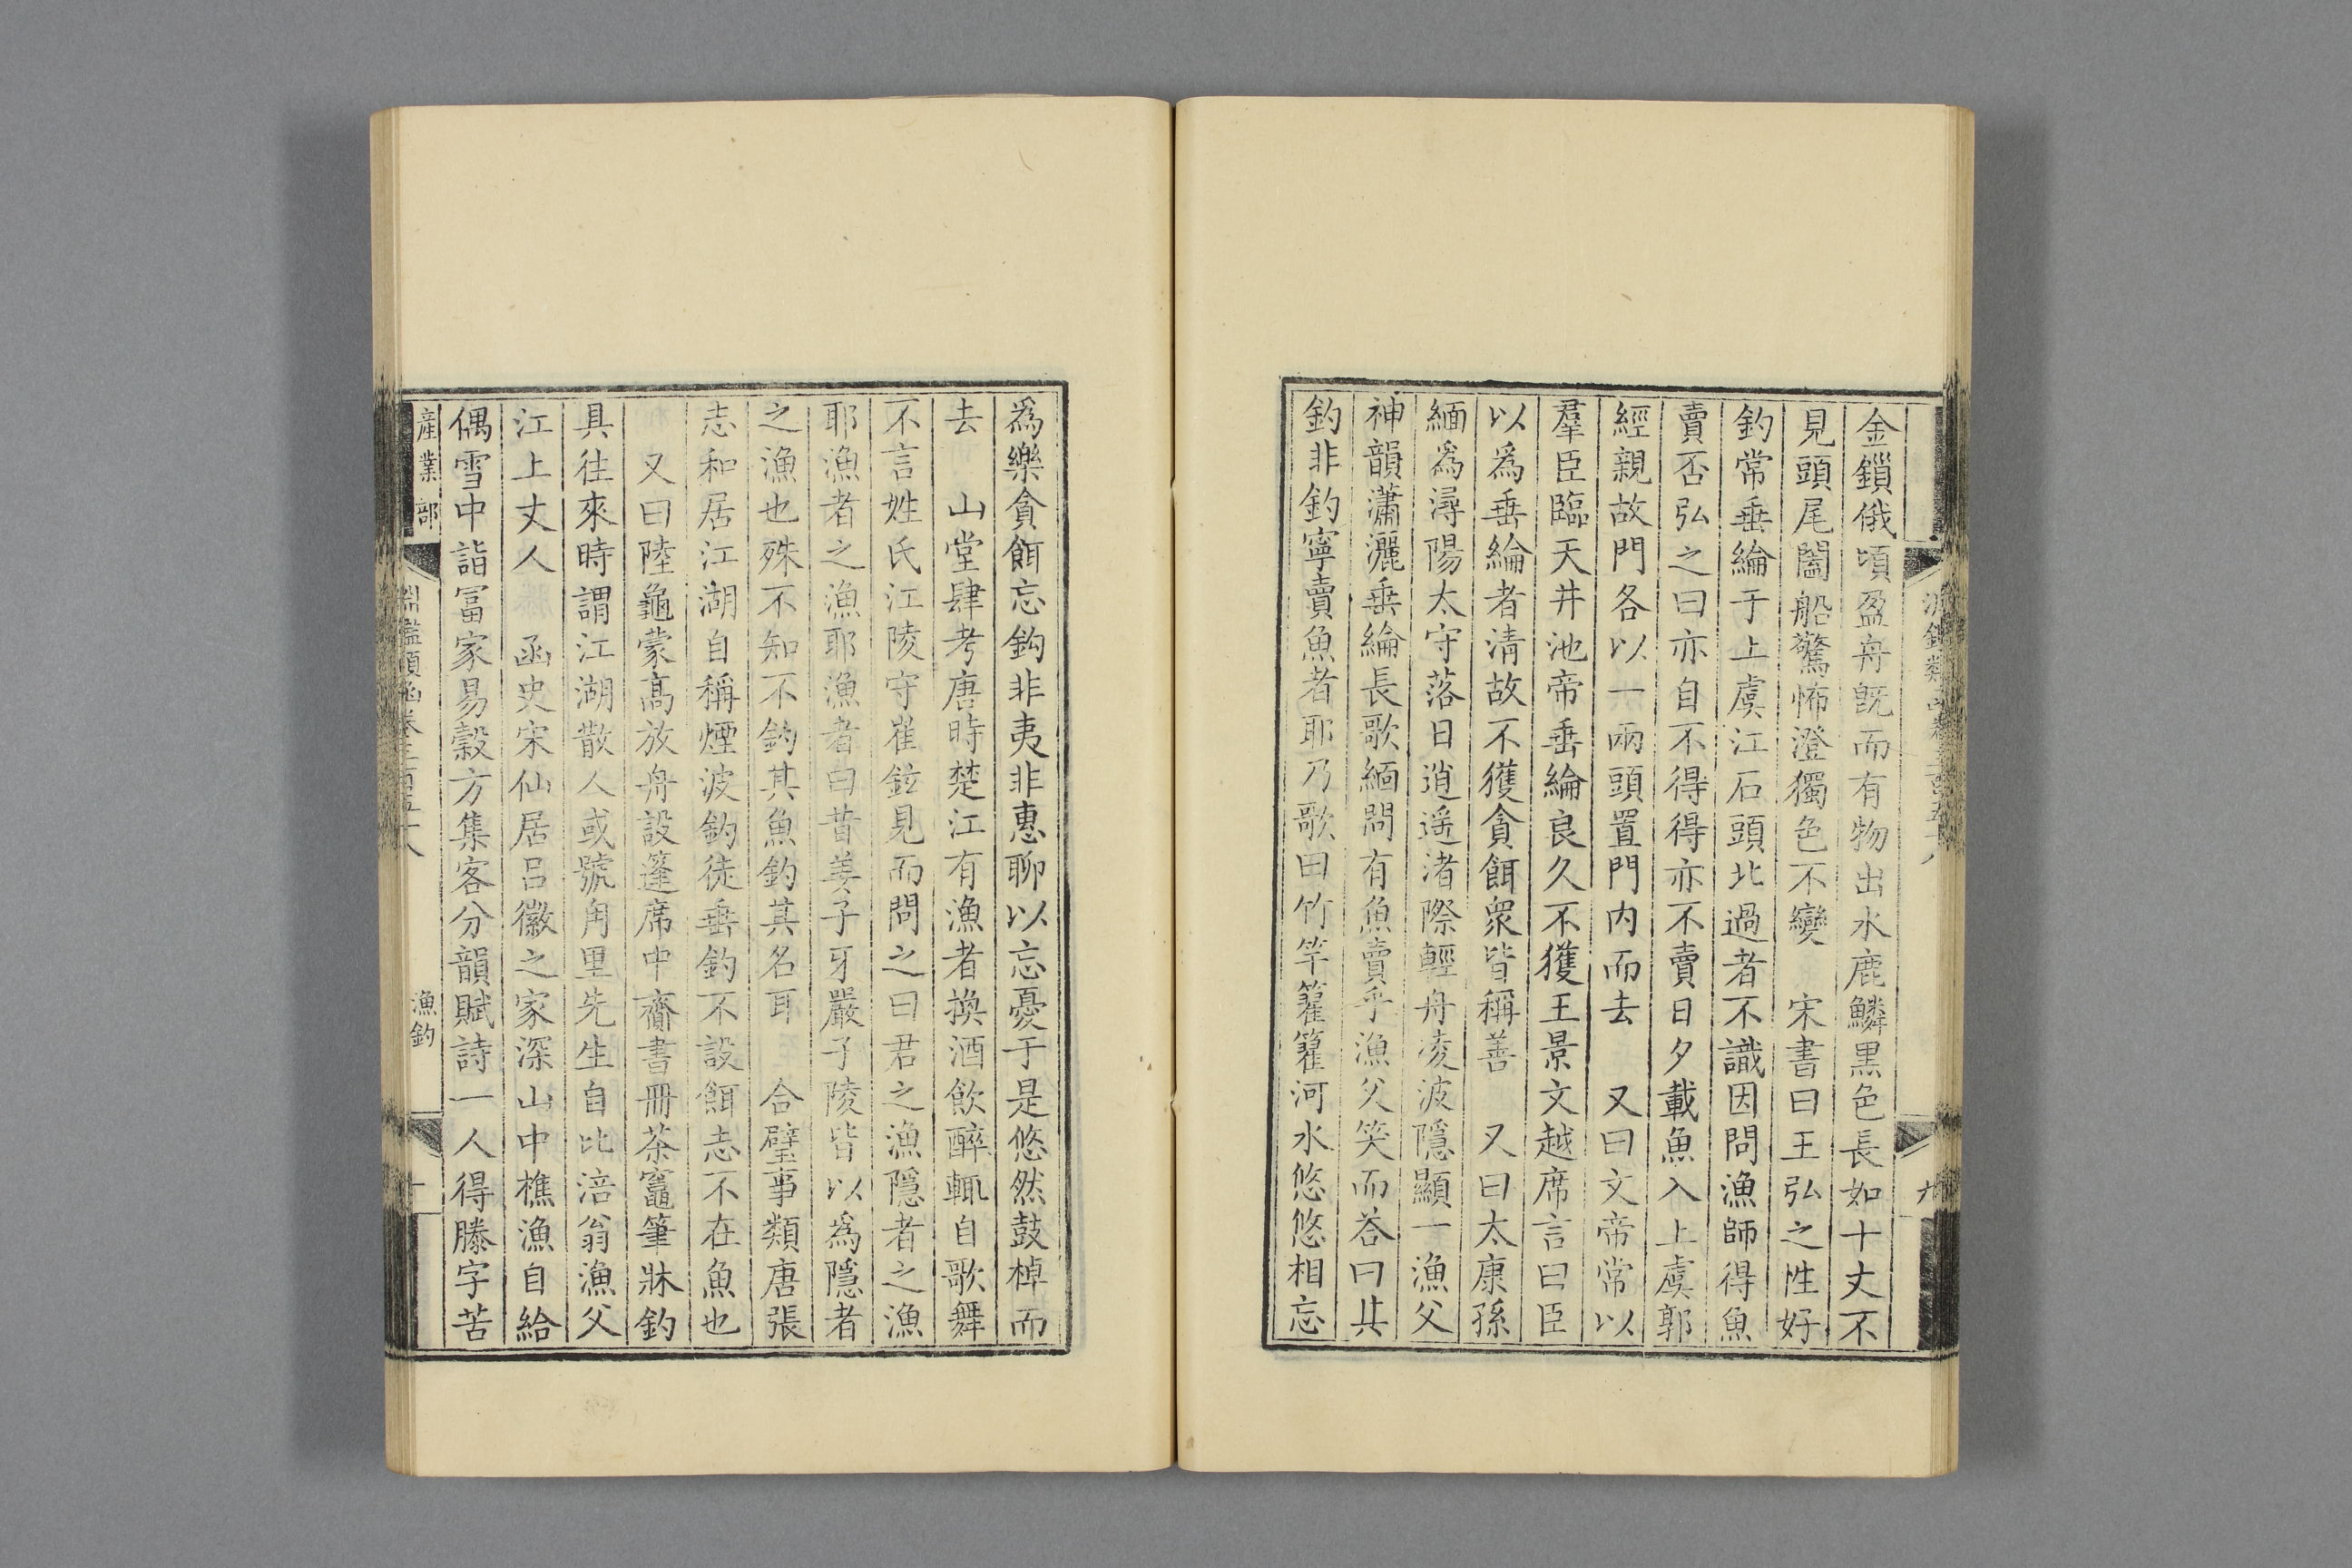 金鎖俄頃盈舟旣而有物出水鹿鱗黒色長如十丈不
見頭尾闔船驚怖澄獨色不變　宋書曰王弘之性好
釣常垂綸于上虞江石頭北過者不識因問漁師得魚
賣否弘之曰亦自不得得亦不賣日夕載魚入上虞郭
經親故門各以一兩頭置門内而去　又曰文帝常以
羣臣臨天井池帝垂綸良久不獲王景文越席言曰臣
以爲垂綸者清故不獲貪餌衆皆稱善　又曰太康孫
緬爲潯陽太守落日逍遙渚際輕舟凌波隱顯一漁父
神韻瀟灑垂綸長歌緬問有魚賣乎漁父笑而荅曰其
釣非釣寧賣魚者耶乃歌曰竹竿籊籊河水悠悠相忘
爲樂貪餌忘鈎非夷非惠聊以忘憂于是悠然鼓棹而
去　山堂肆考唐時楚江有漁者換酒飲醉輒自歌舞
不言姓氏江陵守崔鉉見而問之曰君之漁隱者之漁
耶漁者之漁耶漁者曰昔姜子牙嚴子陵皆以爲隱者
之漁也殊不知不釣其魚釣其名耳　合璧事類唐張
志和居江湖自稱煙波釣徒垂釣不設餌志不在魚也
又曰陸龜蒙高放舟設篷席中齎書冊茶竈筆牀釣
具往來時謂江湖散人或號甪里先生自比涪翁漁父
江上丈人　函史宋仙居呂徽之家深山中樵漁自給
偶雪中詣冨家易穀方集客分韻賦詩一人得滕字苦
産業部
淵鑑類函卷三百五十八
漁釣
十